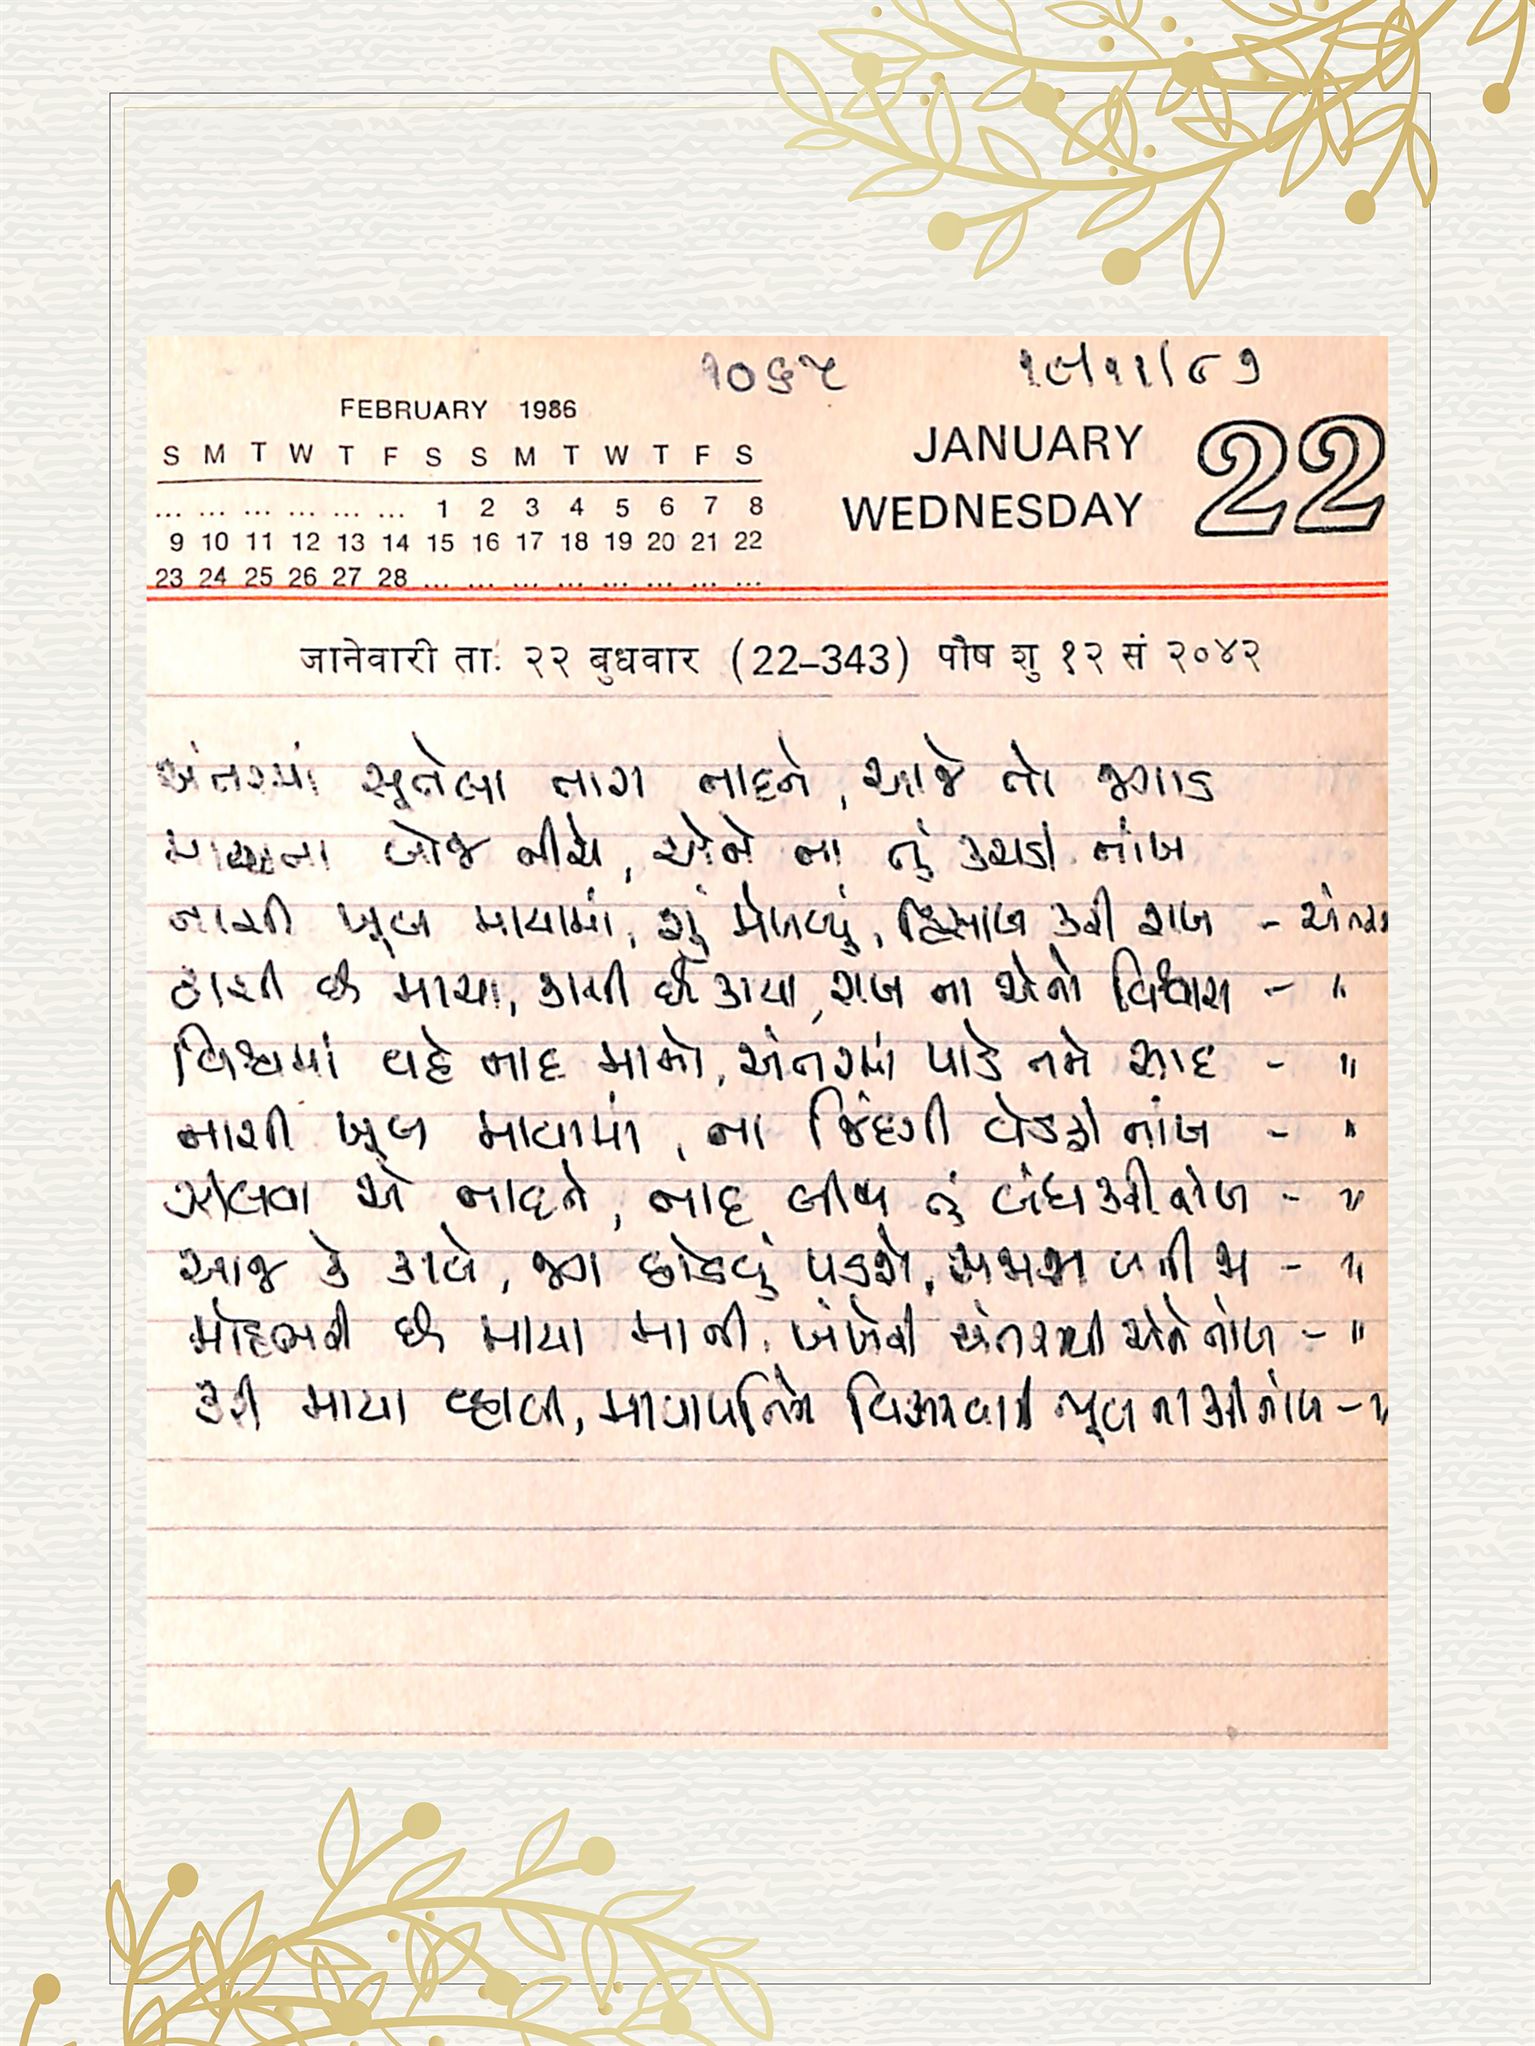 ૧૦૬૫ ૧૯/૧૧/૮૭
FEBRUARY 1986
S M T W T F S S M T W T F S
... ... ... ... ... ... 1 2 3 4 5 6 7 8
9 10 11 12 13 14 15 16 17 18 19 20 21 22
23 24 25 26 27 28 ... ... ... ... ... ... ... ...
JANUARY
WEDNESDAY
22
जानेवारी ताः २२ बुधवार (22–343) पौष शु १२ सं २०४२
અંતરમાં સૂતેલા નાગ નાદને, આજે તો જગાડ
માયાના બોજ નીચે, એને ના તું કચડી નાંખ
નાચી ખૂબ માયામાં, શું મેળવ્યું, હિસાબ કરી રાખ - અંતર
ઠગની છે માયા, કાચી છે કાયા, રાખ ના એનો વિશ્વાસ - "
વિશ્વમાં વહે નાદ માનો, અંતરમાં પાડે તને સાદ - "
નાચી ખૂબ માયામાં, ના જિંદગી વેડફી નાંખ - "
ઝીલવા એ નાદને, નાદ બીજા તું બંધ કરી નાંખ - "
આજ કે કાલે, જગ છોડવું પડશે, સમજી બની જા - "
મોહભરી છે માયા માની, ખંખેરી અંતરથી એને નાંખ - "
કરી માયા વ્હાલી, માયાપતિને વિસરવાની ભૂલ ના કરી નાંખ - "